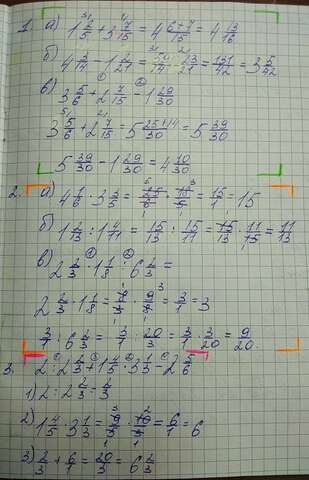 1. а) 1 2/5 + 3 7/15 = 4 (6+7)/15 = 4 13/15
б) 4 3/14 - 1 2/21 = 59/14 - 23/21 = 131/42 = 3 5/42
в) 3 5/6 + 2 7/15 - 1 29/30
3 5/6 + 2 7/15 = 5 (25+14)/30 = 5 39/30
5 39/30 - 1 29/30 = 4 10/30
2. а) 4 1/6 · 3 3/5 = 25/6 · 18/5 = 15/1 = 15
б) 1 2/13 : 1 4/11 = 15/13 : 15/11 = 15/13 · 11/15 = 11/13
в) 2 2/3 · 1 1/8 : 6 2/3 =
2 2/3 · 1 1/8 = 8/3 · 9/8 = 3/1 = 3
3/1 : 6 2/3 = 3/1 : 20/3 = 3/1 · 3/20 = 9/20.
3. 2 : 2 2/3 + 1 4/5 · 3 1/3 - 2 5/6
1) 2 : 2 2/3 = 2/3
2) 1 4/5 · 3 1/3 = 9/5 · 10/3 = 6/1 = 6
3) 2/3 + 6/1 = 20/3 = 6 2/3